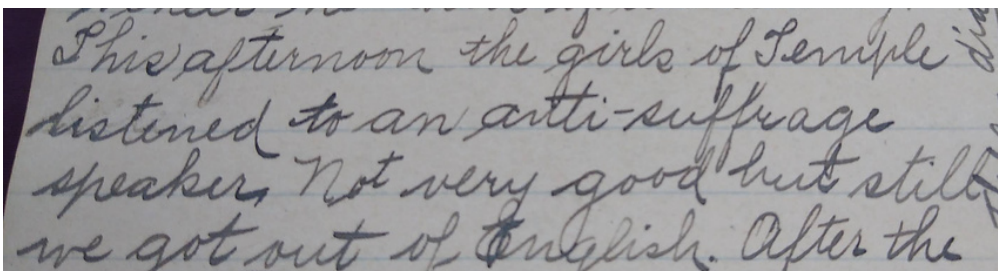 This afternoon the girls of Temple
listened to an anti-suffrage
speaker. Not very good but still
we got out of English. After the